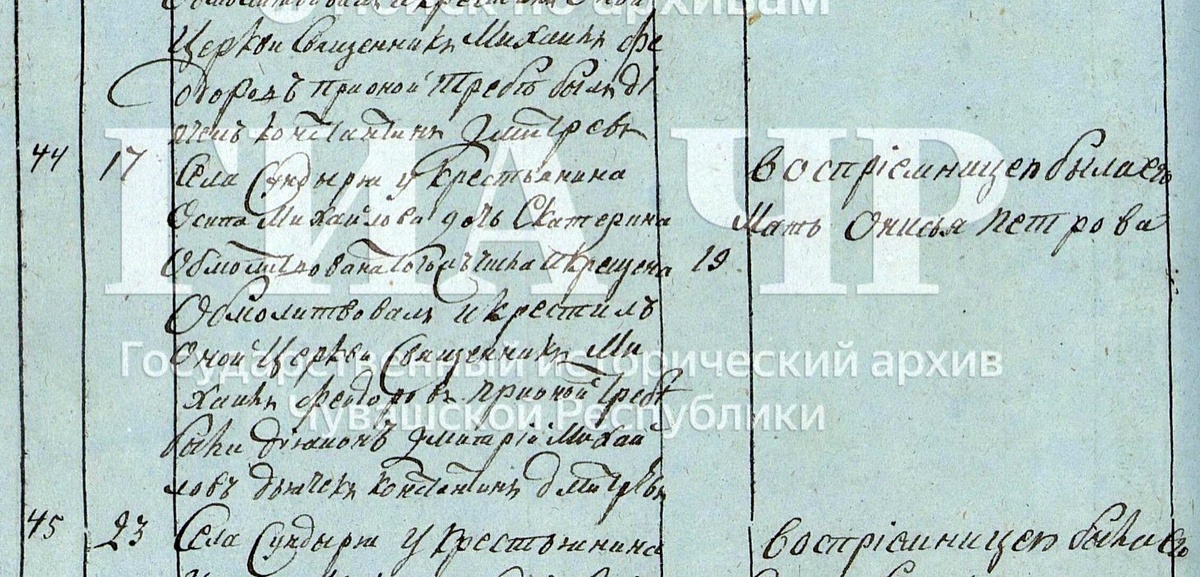 Поиск по архивам
Церкви Священникъ Михаилъ Фе
одоровъ при оной требѣ былъ дь
ячекъ Константинъ Дмитревъ
44 17 Села Сундыря у крестьянина
Осипа Михайлова дочь Екатерина
Обмолитвована того ... числа и крещена 19
Обмолитвовалъ и крестилъ
оной Церкви Священникъ Ми
хаилъ Федоровъ при оной требѣ
были діаконъ Дмитрій Михай
ловъ дьячекъ Константинъ Дмитревъ
воспріемницею была его
Мать Онисья Петрова
45 23 Села Сундыря у крестьянина
воспріемницею была его
ГИА ЧР
Государственный исторический архив
Чувашской Республики